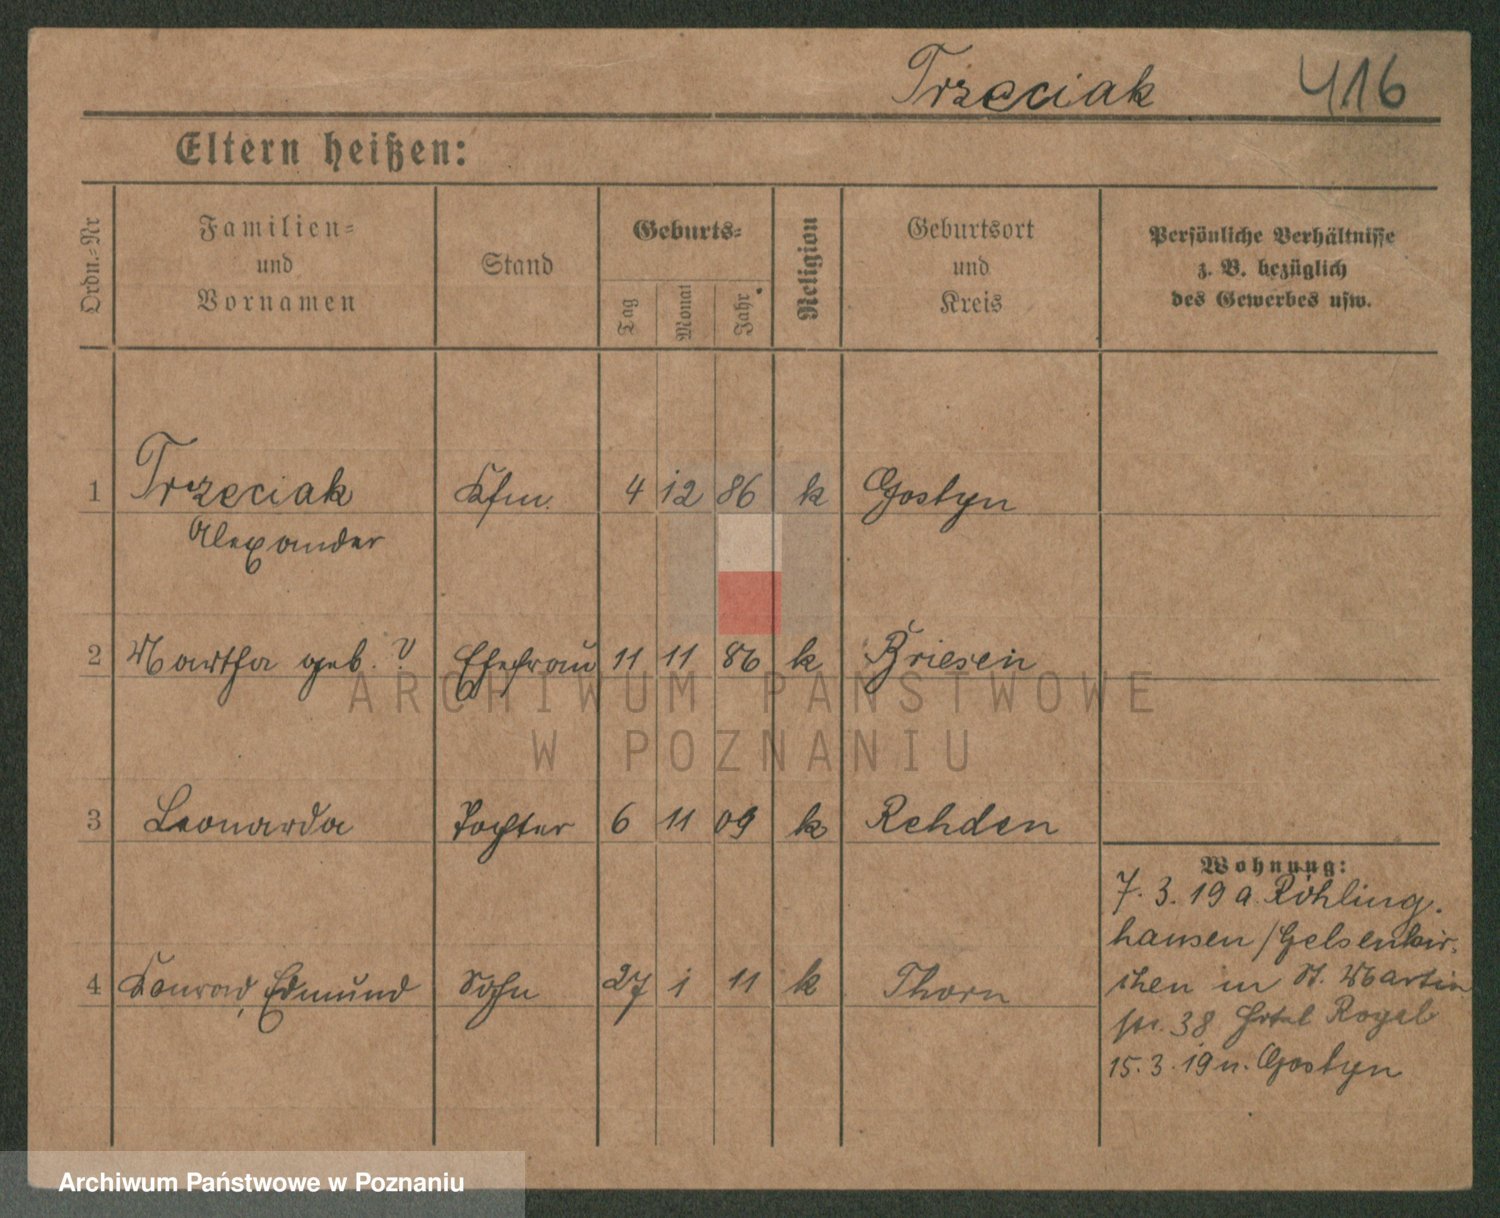 Trzeciak 416
Eltern heißen:
Ordn.-Nr
Familien-
und
Vornamen
Stand
Geburts-
Tag
Monat
Jahr
Religion
Geburtsort
und
Kreis
Persönliche Verhältnisse
z. B. bezüglich
des Gewerbes usw.
1 Trzeciak Kfm. 4 12 86 k Gostyn
Alexander
2 Martha geb. ? Ehefrau 11 11 86 k Briesen
3 Leonarda Tochter 6 11 09 k Rehden
4 Konrad, Edmund Sohn 27 1 11 k Thorn
Wohnung:
7. 3. 19 a. Röhling-
hausen / Gelsenkir-
chen in St. Martin
str. 38 Hotel Royal
15. 3. 19 n. Gostyn
ARCHIWUM PAŃSTWOWE
W POZNANIU
Archiwum Państwowe w Poznaniu